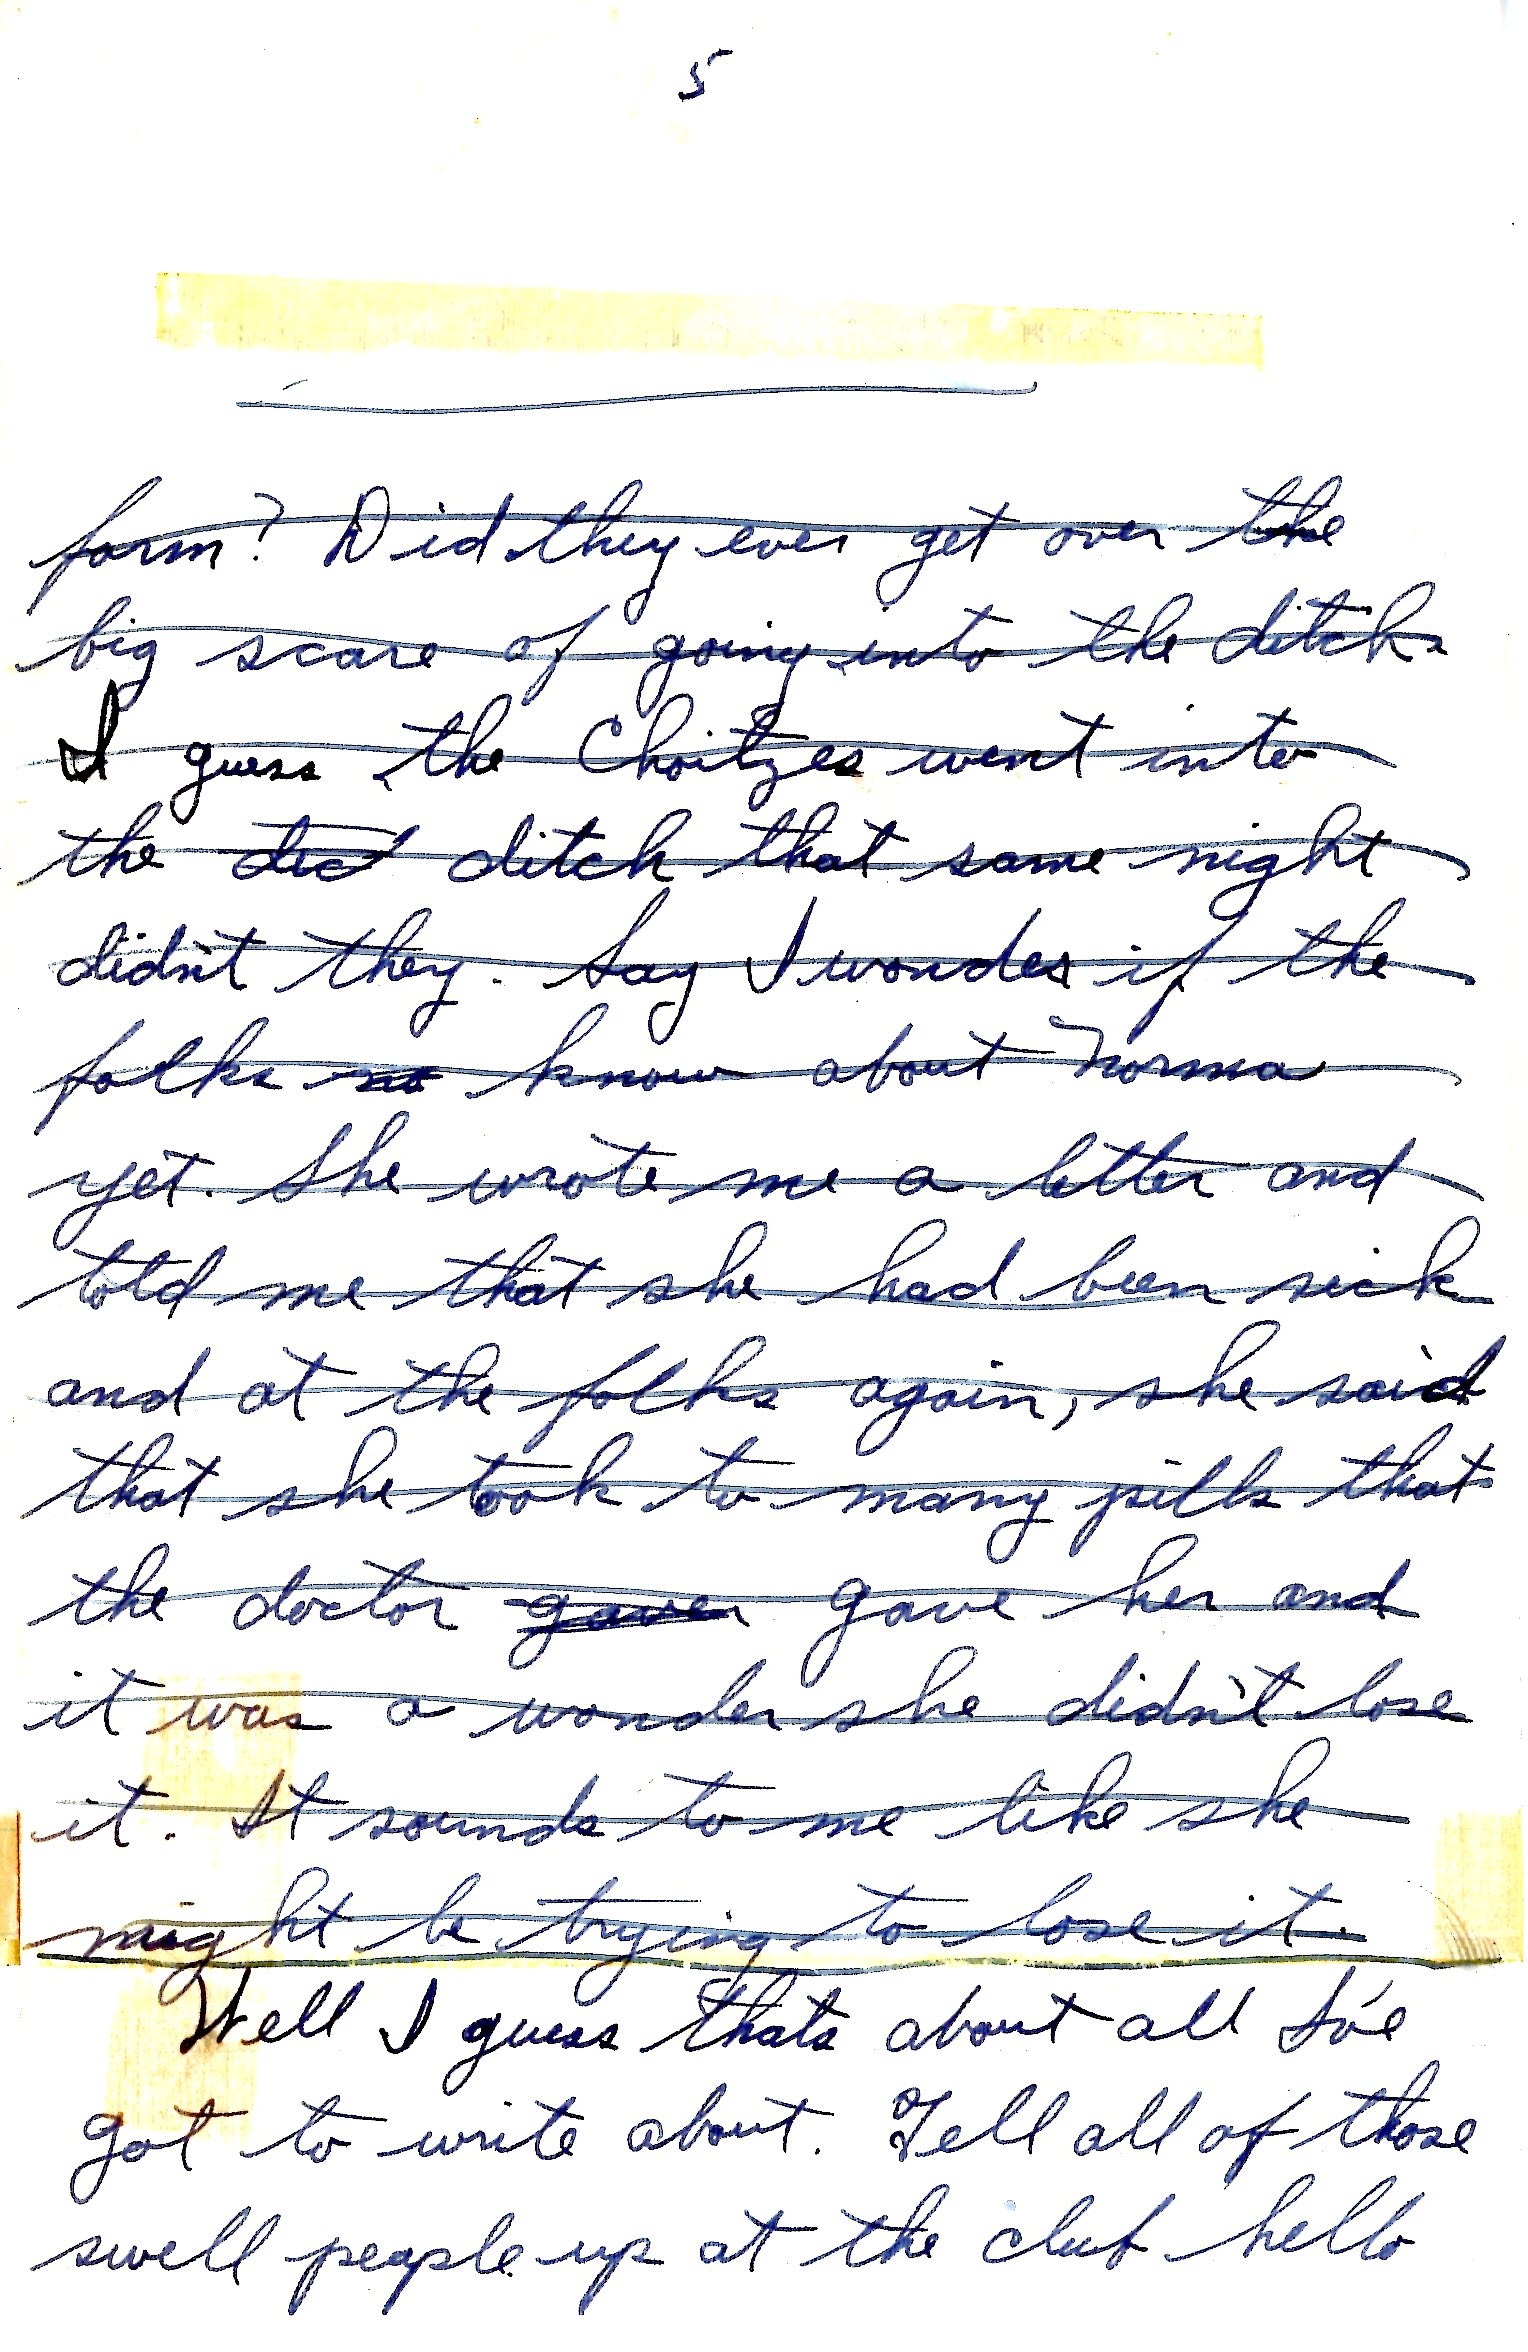 5
farm? Did they ever get over the
big scare of going into the ditch.
I guess the Choitzes went into
the did ditch that same night
didn't they. Say I wonder if the
folks no know about Norma
yet. She wrote me a letter and
told me that she had been sick
and at the folks again, she said
that she took to many pills that
the doctor gaver gave her and
it was a wonder she didn't lose
it. It sounds to me like she
might be trying to lose it.
Well I guess thats about all I've
got to write about. Tell all of those
swell people up at the club hello